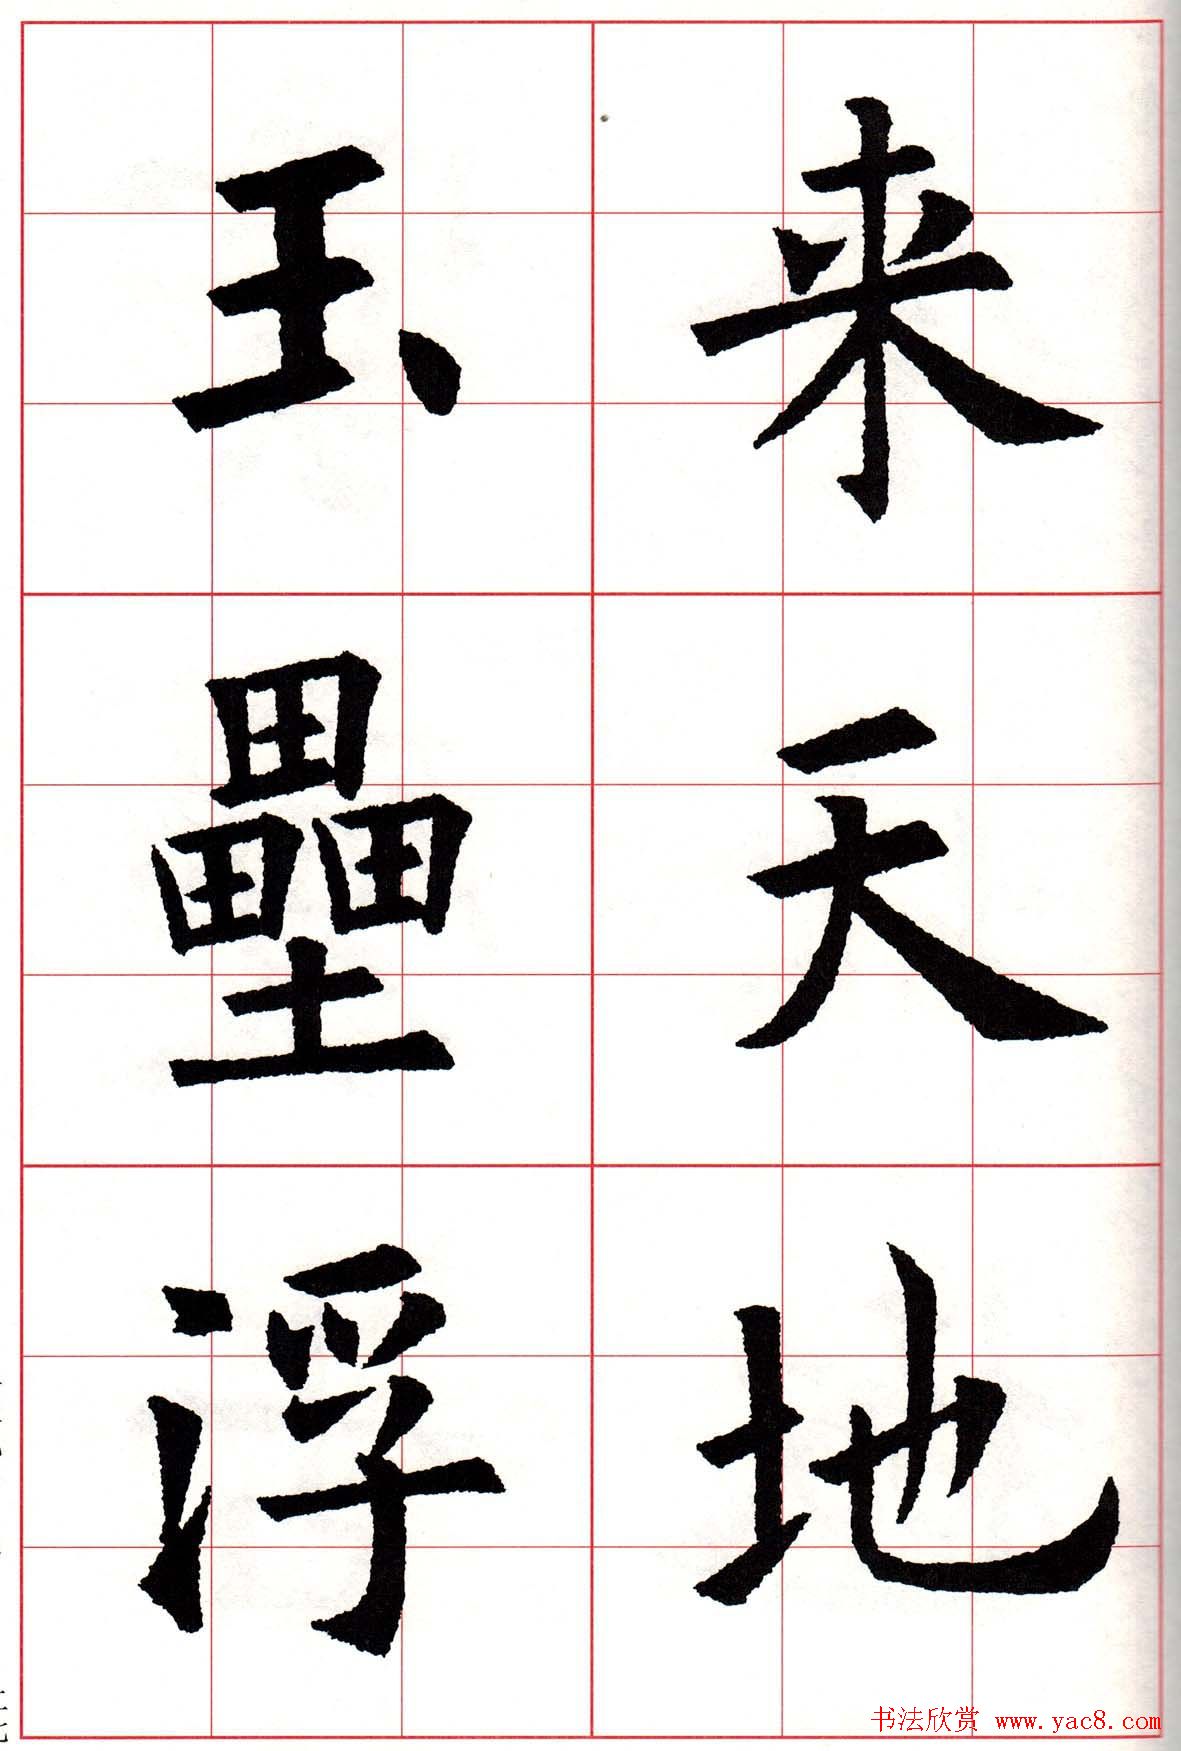 来天地
玉壘浮
书法欣赏 www.yac8.com